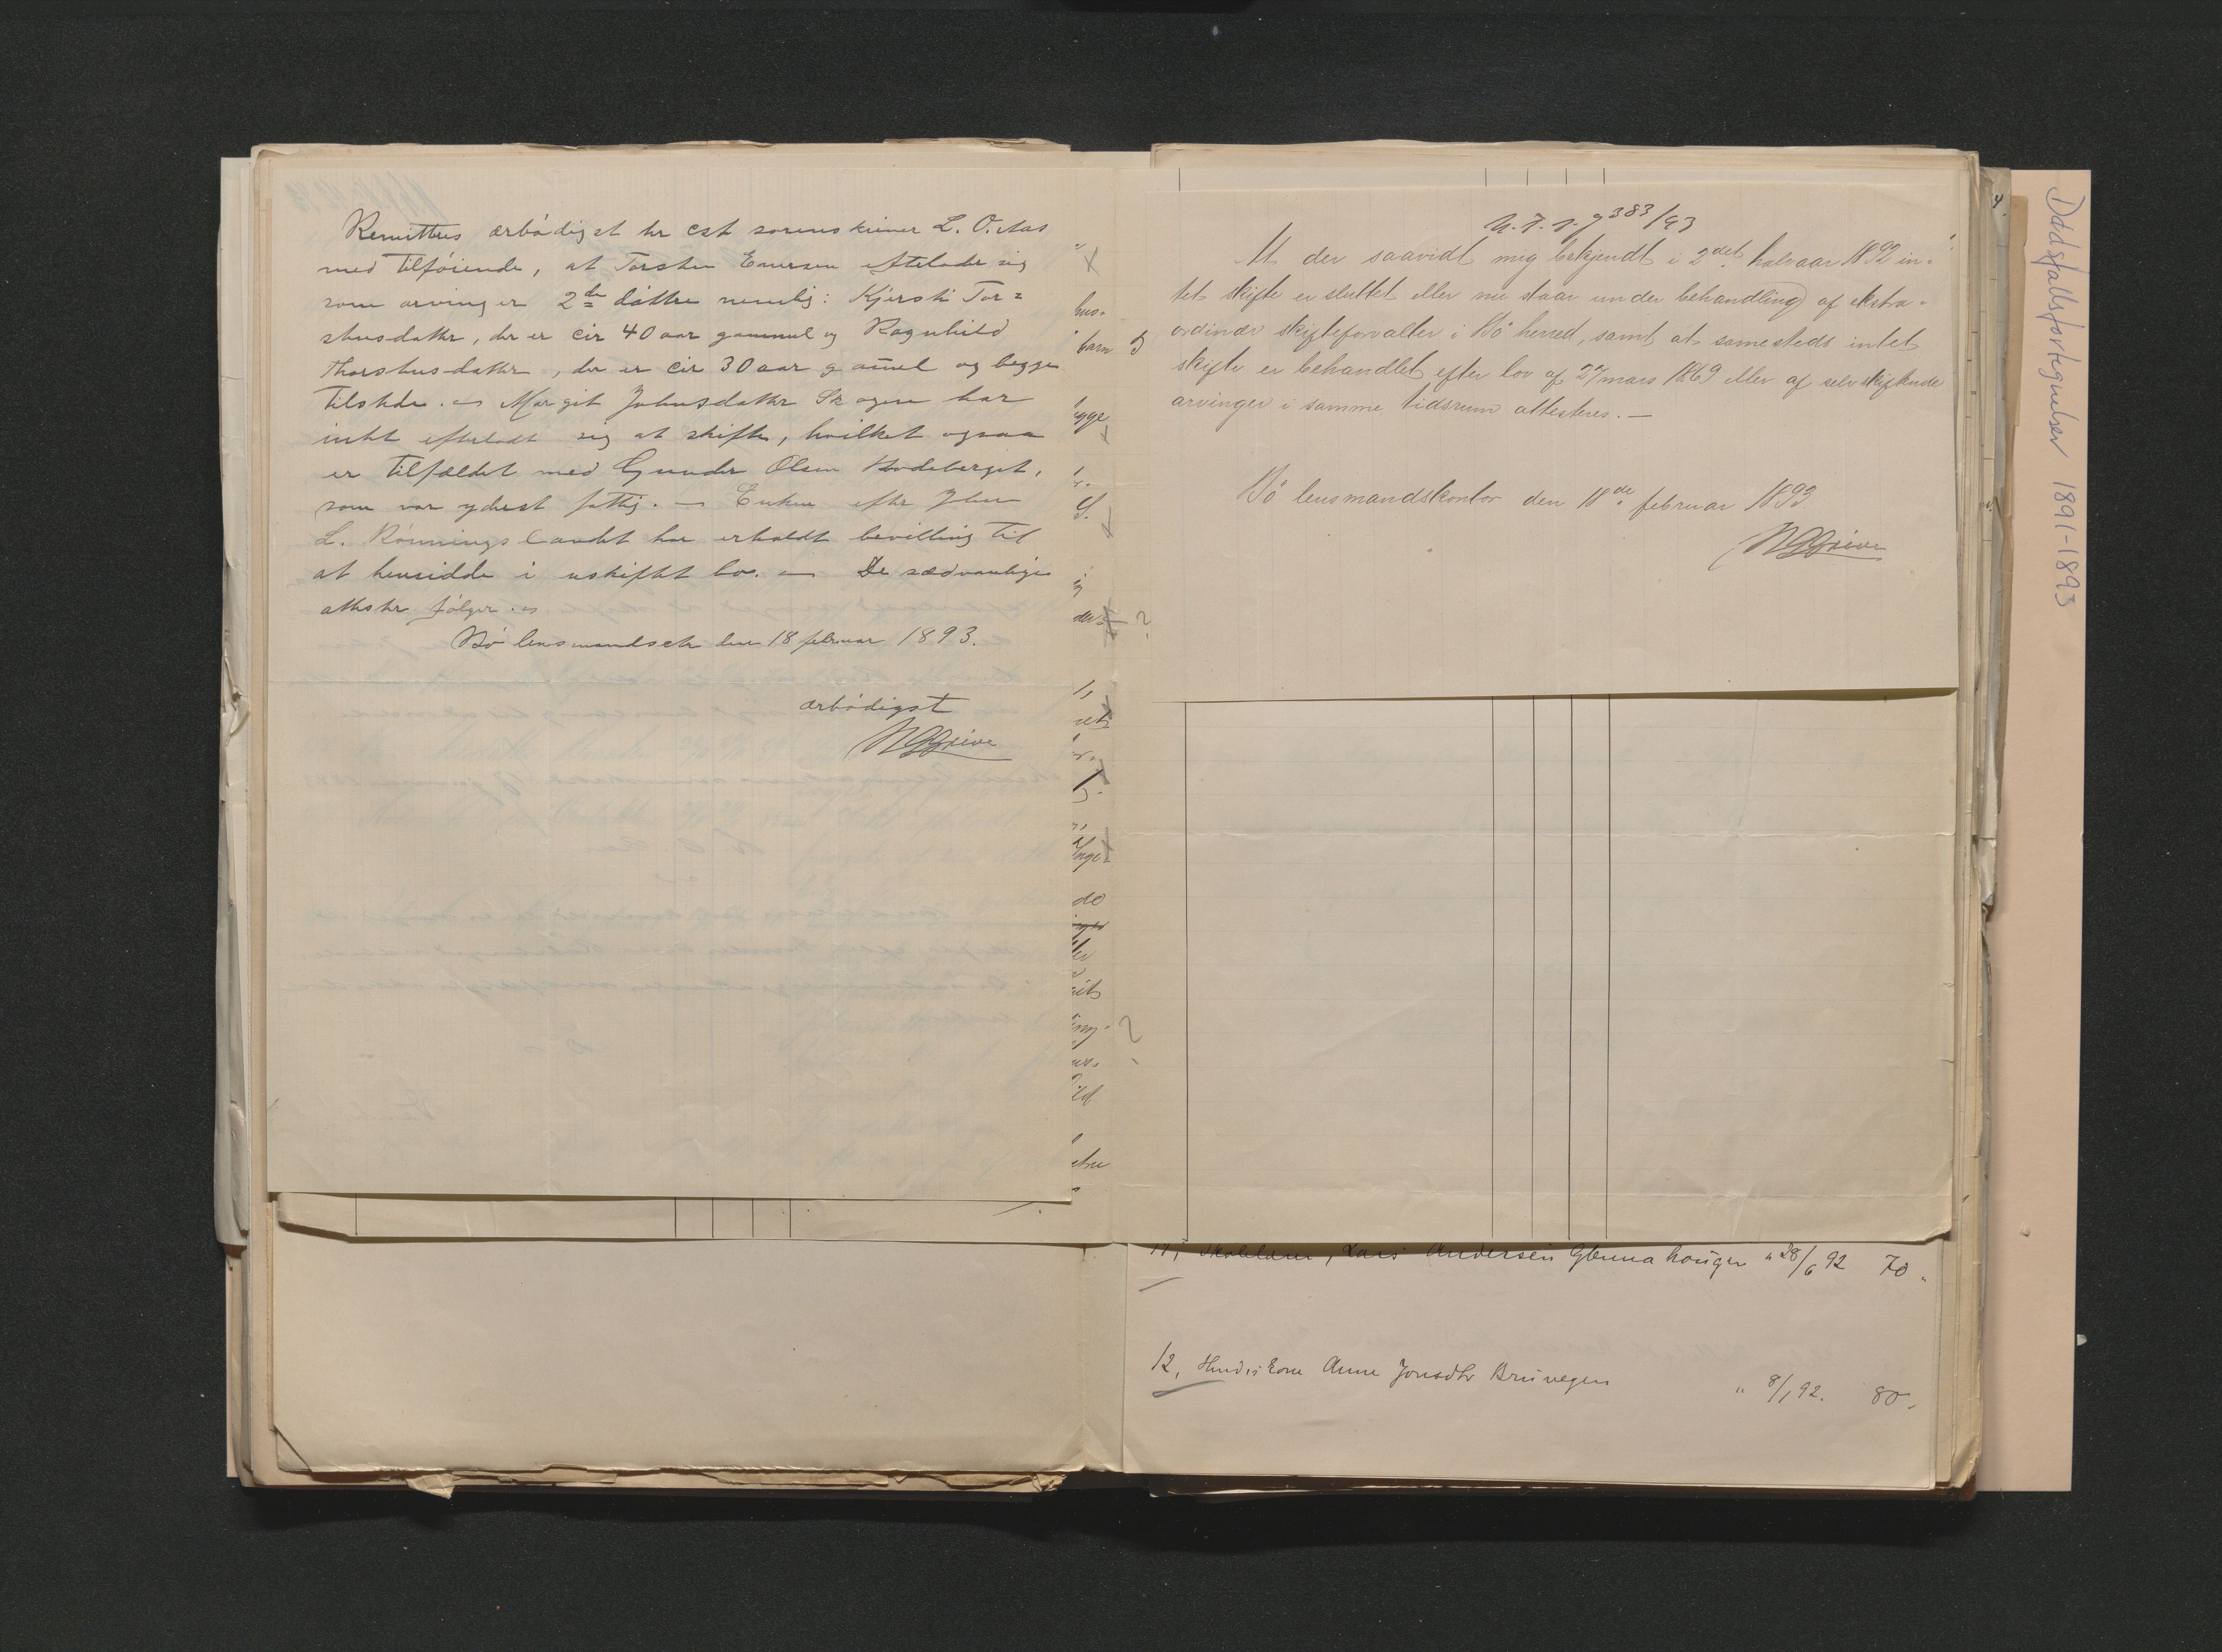 Remitteres ærbödigst hr cst sorenskriver L. O. Aas
med tilföiende, at Torsten Enersen efterlader sig
som arvinger 2de döttre nemlig: Kjersti Tor=
stensdatter, der er cir 40 aar gammel og Ragnhild
Thorstensdatter, der er cir 30 aar gam̄el og begge
tilstede. — Margit Johnsdatter Skogen har
intet efterladt sig at skifte, hvilket ogsaa
er tilfældet med Gunder Olsen
som var yderst fattig. — Enken efter John
L. Rönningslandet har erholdt bevilling til
at hensidde i uskiftet bo. — De sædvanlige
attester fölger. —
Bö lensmandsetr den 18 februar 1893.
ærbödigst
NGGrive
hus-
barn
ygge
S.
der
set
Inge-
do
ter
ny-
ild
383/93
At der saavidt mig bekjendt i 2det halvaar 1892 in-
tet skifte er sluttet eller nu staar under behandling af ekstra-
ordinær skifteforvalter i Bö herred, samt at samesteds intet
skifte er behandlet efter lov af 27 mars 1869 eller af selvskiftende
arvinger i samme tidsrum attesteres. —
Bö lensmandskontor den 18de februar 1893
NGGrive
11, Skolelærer, Lars Andersen Glenna hougen " 28/6 92 70 "
12, Anne Jonsdtr Brúvegen " 8/1 92. 80 "
Dødsfallsfortegnelser 1891-1893
4.